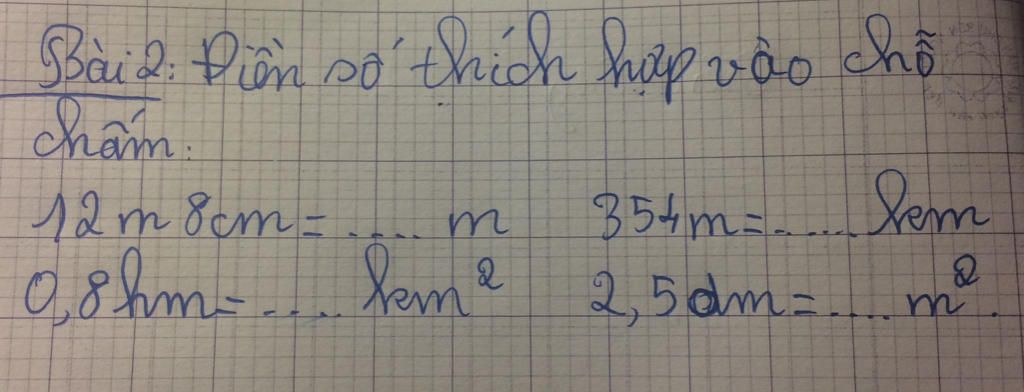 Bài 2: Điền số thích hợp vào chỗ
chấm:
12m 8cm = ..... m 354m = ..... km
0,8hm = ..... km² 2,5dm = ..... m².